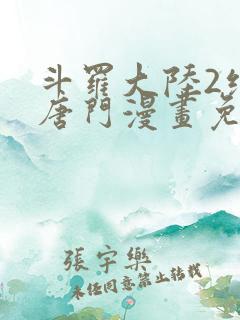 斗羅大陸2
唐門漫畫免
張宇樂
未任同意禁止轉載